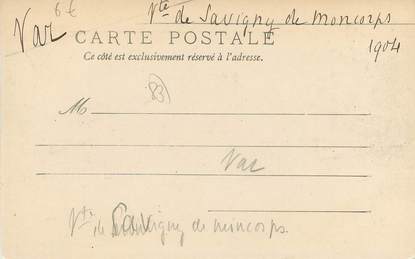 6€
Vte de Savigny de Moncorps
Var
CARTE POSTALE
1904
Ce côté est exclusivement réservé à l'adresse.
83
M
Var
Vte de Savigny de moncorps.